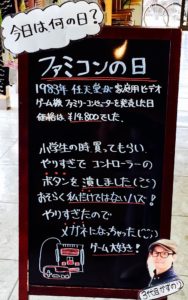 今日は何の日?
ファミコンの日
1983年 任天堂が家庭用ビデオ
ゲーム機 ファミリーコンピュータを発売した日
価格は ¥14,800でした.
小学生の時 買ってもらい
やりすぎて コントローラーの
ボタンを 潰しました
おそらく 私だけではないハズ!
やりすぎたので
メガネになっちゃった
ゲーム大好き!
3代目かずの